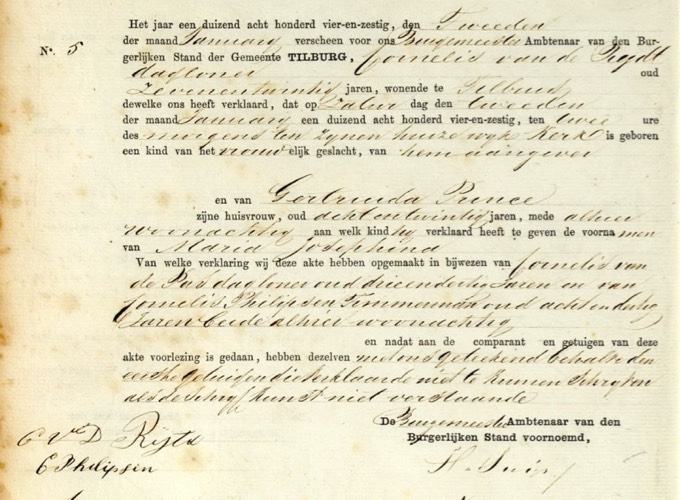 Het jaar een duizend acht honderd vier-en-zestig, den Tweeden
Nº. 5 der maand January verscheen voor ons Burgemeester Ambtenaar van den Bur-
gerlijken Stand der Gemeente TILBURG, Cornelis van de Rydt
dagloner oud
Zevenentwintig jaren, wonende te Tilburg
dewelke ons heeft verklaard, dat op Zatur dag den tweeden
der maand January een duizend acht honderd vier-en-zestig, ten twee ure
des morgens ten zynen huize wyk Kerk is geboren
een kind van het vrouw elijk geslacht, van hem aangever
en van Gertruida Prince
zijne huisvrouw, oud achtentwintig jaren, mede alhier
woonachtig aan welk kind hij verklaard heeft te geven de voorna men
van Maria Josephina
Van welke verklaring wij deze akte hebben opgemaakt in bijwezen van Cornelis van
de Pas daglooner oud drieendertig Jaren en van
Cornelis Philipsen Timmerman oud achtendertig
Jaren beide alhier woonachtig
en nadat aan de comparant en getuigen van deze
akte voorlezing is gedaan, hebben dezelven met ons geteekend behalve den
eerste getuigen die verklaarde niet te kunnen schryven
als de schryfkunst niet verstaande
De Burgemeester Ambtenaar van den
Burgerlijken Stand voornoemd,
C V D Rijdt
C Philipsen